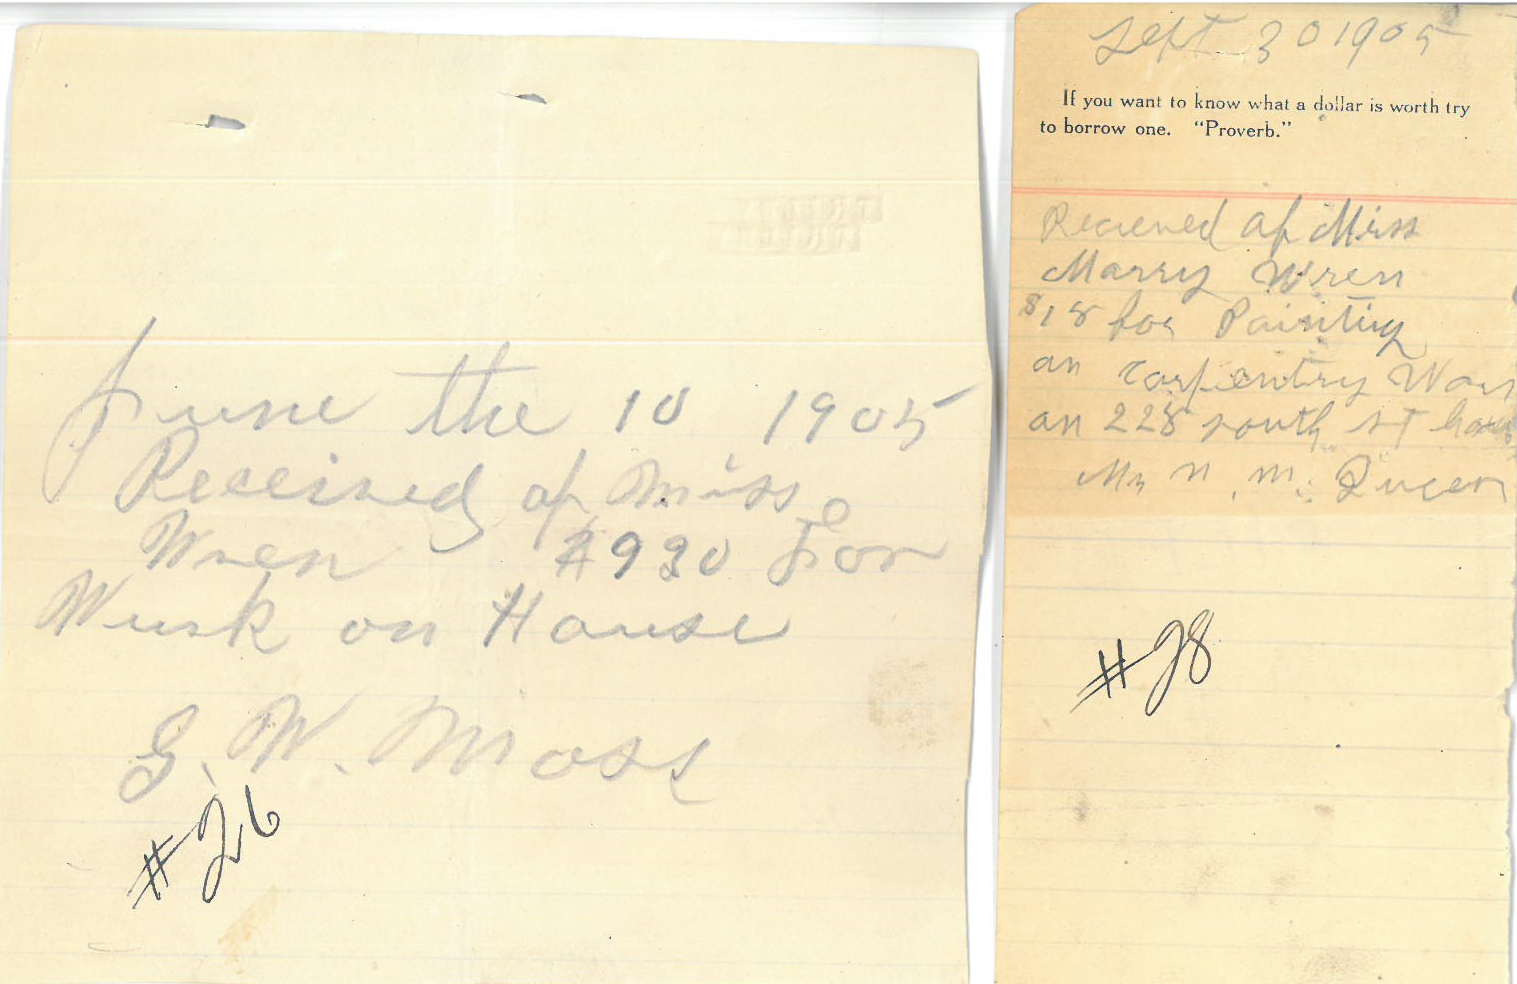 June the 10 1905
Received of Miss
Wren $9 90 For
Wurk on Hause
G. W. Moss
#26
Sept 30 1905
If you want to know what a dollar is worth try
to borrow one. "Proverb."
Recieved of Miss
Marry Wren
$18 for Painting
an Carpentry Wor
an 228 south st
Mr N. M.
#28